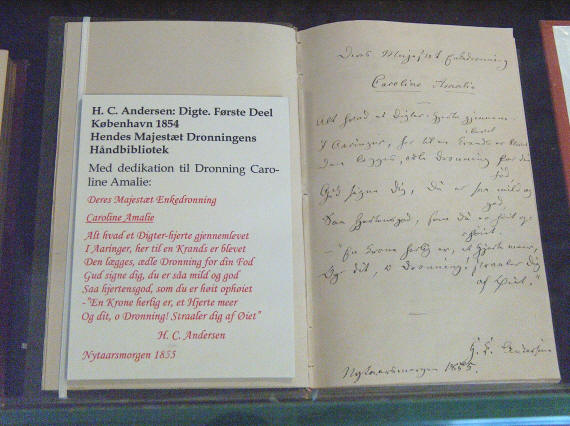 H. C. Andersen: Digte. Første Deel
København 1854
Hendes Majestæt Dronningens
Håndbibliotek
Med dedikation til Dronning Caro-
line Amalie:
Deres Majestæt Enkedronning
Caroline Amalie
Alt hvad et Digter-hjerte gjennemlevet
I Aaringer, her til en Krands er blevet
Den lægges, ædle Dronning for din Fod
Gud signe dig, du er såa mild og god
Saa hjertensgod, som du er høit ophøiet
-"En Krone herlig er, et Hjerte meer
Og dit, o Dronning! Straaler dig af Øiet"
H. C. Andersen
Nytaarsmorgen 1855
Deres Majestæt Enkedronning
Caroline Amalie
Alt hvad et Digter-hjerte gjennem-
levet
I Aaringer, her til en Krands er blevet
Den lægges, ædle Dronning for din
Fod,
Gud signe dig, du er saa mild og
god,
Saa hjertensgod, som du er høit op-
høiet.
–"En Krone herlig er, et Hjerte meer,
Og dit, o Dronning! straaler dig
af Øiet."
H. C. Andersen
Nytaarsmorgen 1855.